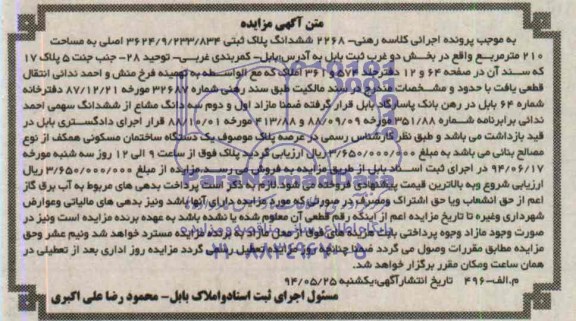 متن آگهی مزایده
به موجب پرونده اجرائی کلاسه رهنی- ۲۲۶۸ ششدانگ پلاک ثبتی ۳۶۲۴/۹/۲۳۳/۸۳۴ اصلی به مساحت
۲۱۰ مترمربع واقع در بخش دو غرب ثبت بابل به آدرس بابل- کمربندی غربی- توحید ۲۸- جنب جنت ۵ پلاک ۱۷
که سند آن در صفحه ۶۴ و ۱۲ دفترجلد ۵۷۴ و ۳۶۱ املاک که مع الواسطه به فهیمه فرخ منش و احمد ندائی انتقال
قطعی یافت با حدود و مشخصات مندرج در سند مالکیت طبق سند رهنی شماره ۳۲۶۸۷ مورخه ۸۷/۱۲/۲۱ دفترخانه
شماره ۶۴ بابل در رهن بانک پاسارگاد بابل قرار گرفته ضمنا مازاد اول و دوم سه دانگ مشاع از ششدانگ سهمی احمد
ندائی برابرنامه شماره ۳۵۱/۸۸ مورخه ۸۸/۰۹/۰۹ و ۴۱۳/۸۸ مورخه ۸۸/۱۰/۰۱ قرار اجرای دادگستری بابل در
قید بازداشت می باشد و طبق نظر کارشناس رسمی در عرصه پلاک موصوف یک دستگاه ساختمان مسکونی همکف از نوع
مصالح بنائی می باشد به مبلغ ۳/۶۵۰/۰۰۰/۰۰۰ ریال ارزیابی گردید پلاک فوق از ساعت ۹ الی ۱۲ روز سه شنبه مورخه
۹۴/۰۶/۱۷ در اجرای ثبت اسناد بابل از طریق مزایده به فروش می رسد مزایده از مبلغ ۳/۶۵۰/۰۰۰/۰۰۰ ریال
ارزیابی شروع وبه بالاترین قیمت پیشنهادی فروخته می شود لازم به ذکر است پرداخت بدهی های مربوط به آب برق گاز
اعم از حق انشعاب ویا حق اشتراک ومصرف در صورتی که مورد مزایده دارای آنها باشد ونیز بدهی های مالیاتی وعوارض
شهرداری وغیره تا تاریخ مزایده اعم از اینکه رقم قطعی آن معلوم شده یا نشده باشد به عهده برنده مزایده است ونیز در
صورت وجود مازاد وجوه پرداختی بابت هزینه های فوق از محل مازاد به برنده مزایده مسترد خواهد شد ونیم عشر وحق
مزایده مطابق مقررات وصول می گردد ضمنا چنانچه روز مزایده تعطیل رسمی گردد مزایده روز اداری بعد از تعطیلی در
همان ساعت ومکان مقرر برگزار خواهد شد.
م.الف-۴۹۶ تاریخ انتشارآگهی:یکشنبه ۹۴/۰۵/۲۵
مسئول اجرای ثبت اسنادواملاک بابل- محمود رضا علی اکبری